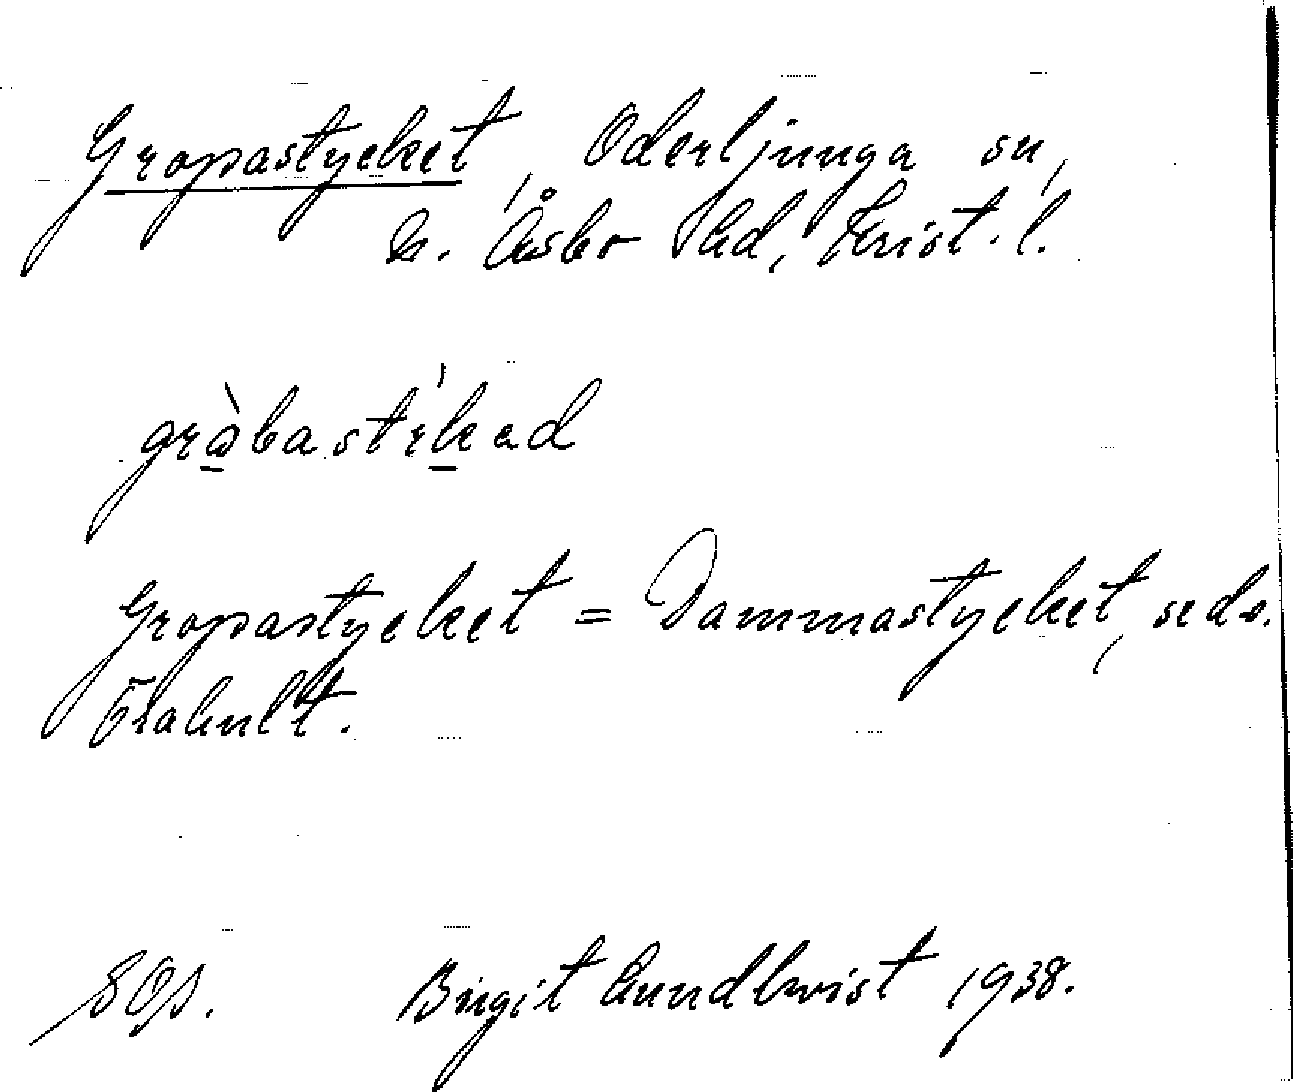 Gropastycket, Oderljunga sn,
N. Åsbo hd, Krist. l.
gràbastýkad
Gropastycket = Dammastycket, se ds.
Frakult.
SOI. Birgit Lundkvist 1938.